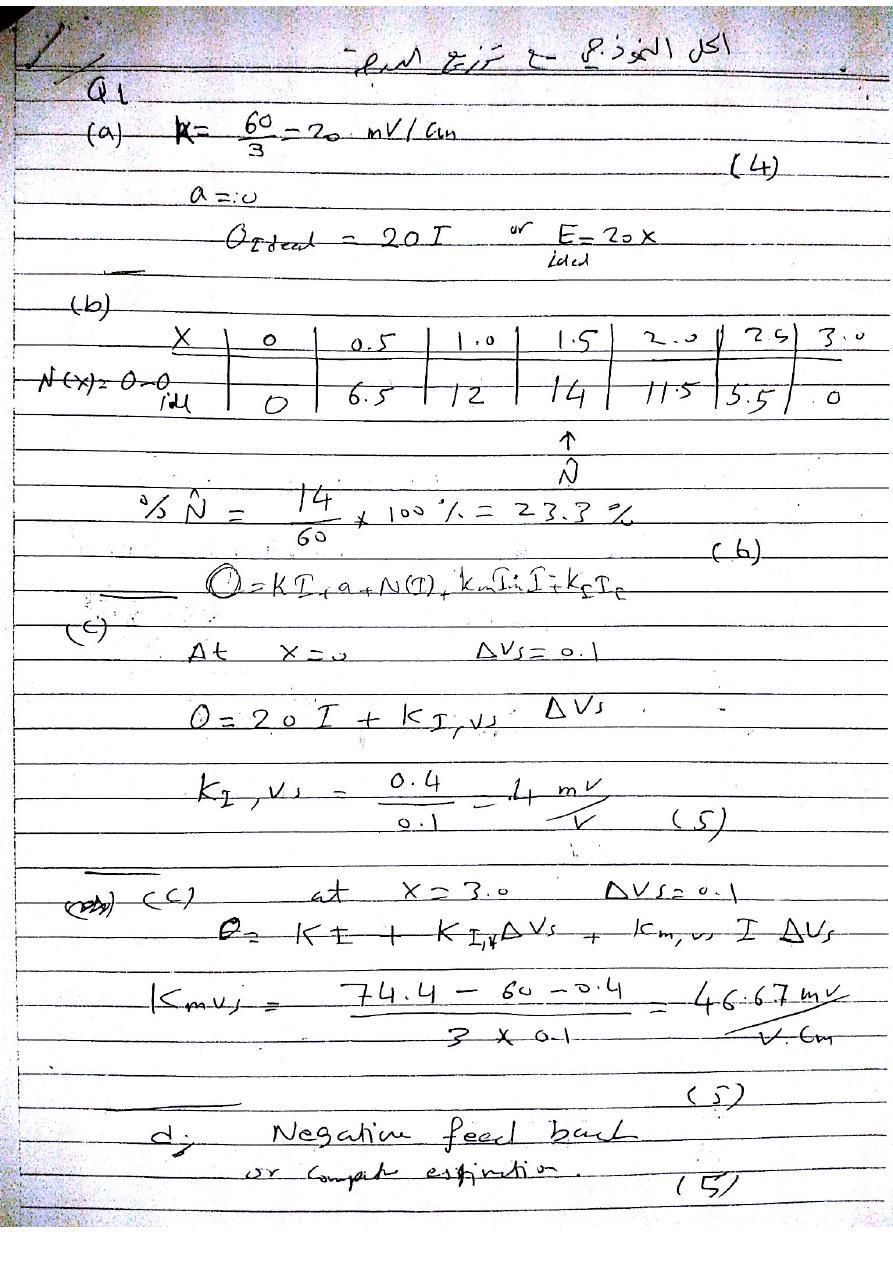 الحل النموذجي مع توزيع الدرجة
Q1
(a) K = 60/3 = 20 mV/cm
(4)
a = 0
O Ideal = 20 I or E ideal = 20 X
(b)
X | 0 | 0.5 | 1.0 | 1.5 | 2.0 | 2.5 | 3.0
N(X) = O-O idl | 0 | 6.5 | 12 | 14 | 11.5 | 5.5 | 0
↑
N̂
% N̂ = 14/60 * 100 % = 23.3 %
(6)
O = KI + a + N(I) + km Im I + kI II
(c)
At X = 0 ΔVs = 0.1
O = 20 I + KI,Vs ΔVs
KI,Vs = 0.4/0.1 = 4 mV/V (5)
(c) at X = 3.0 ΔVs = 0.1
O = KI + KI,V ΔVs + Km,Vs I ΔVs
KmVs = (74.4 - 60 - 0.4)/(3 x 0.1) = 46.67 mV/V.Cm
(5)
d; Negative feed back
or
(5)